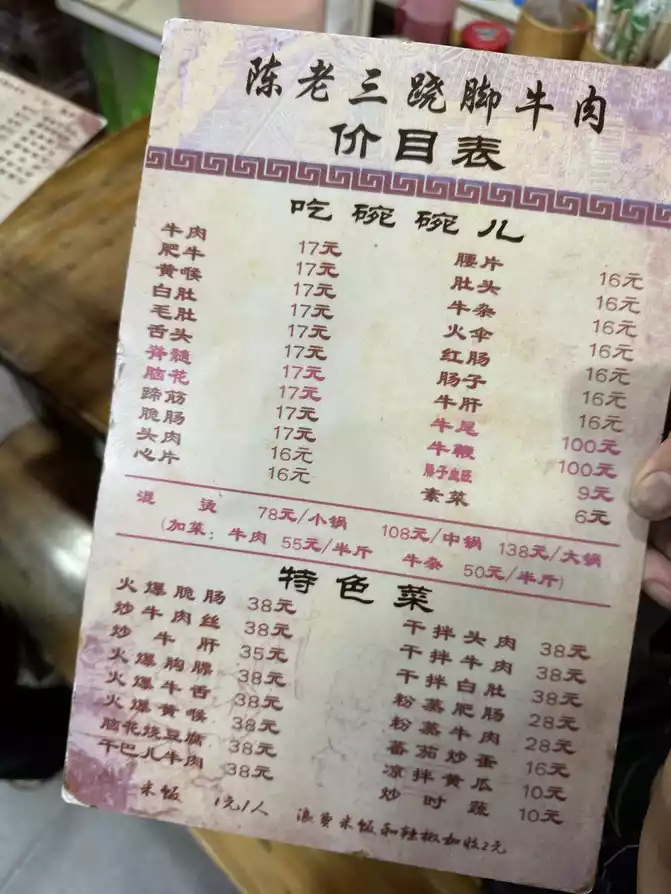 陈老三跷脚牛肉
价目表
吃碗碗儿
牛肉 17元
肥牛 17元
黄喉 17元
白肚 17元
毛肚 17元
舌头 17元
脊髓 17元
脑花 17元
蹄筋 17元
脆肠 17元
头肉 16元
心片 16元
腰片 16元
肚头 16元
牛杂 16元
火伞 16元
红肠 16元
肠子 16元
牛肝 16元
牛尾 100元
牛鞭 100元
臊子血旺 9元
素菜 6元
混烫 78元/小锅 108元/中锅 138元/大锅
(加菜: 牛肉 55元/半斤 牛杂 50元/半斤)
特色菜
火爆脆肠 38元
炒牛肉丝 38元
炒牛肝 35元
火爆胸膘 38元
火爆牛舌 38元
火爆黄喉 38元
脑花烧豆腐 38元
干巴儿牛肉 38元
干拌头肉 38元
干拌牛肉 38元
干拌白肚 38元
粉蒸肥肠 28元
粉蒸牛肉 28元
番茄炒蛋 16元
凉拌黄瓜 10元
炒时蔬 10元
米饭 1元/人 浪费米饭和辣椒加收2元